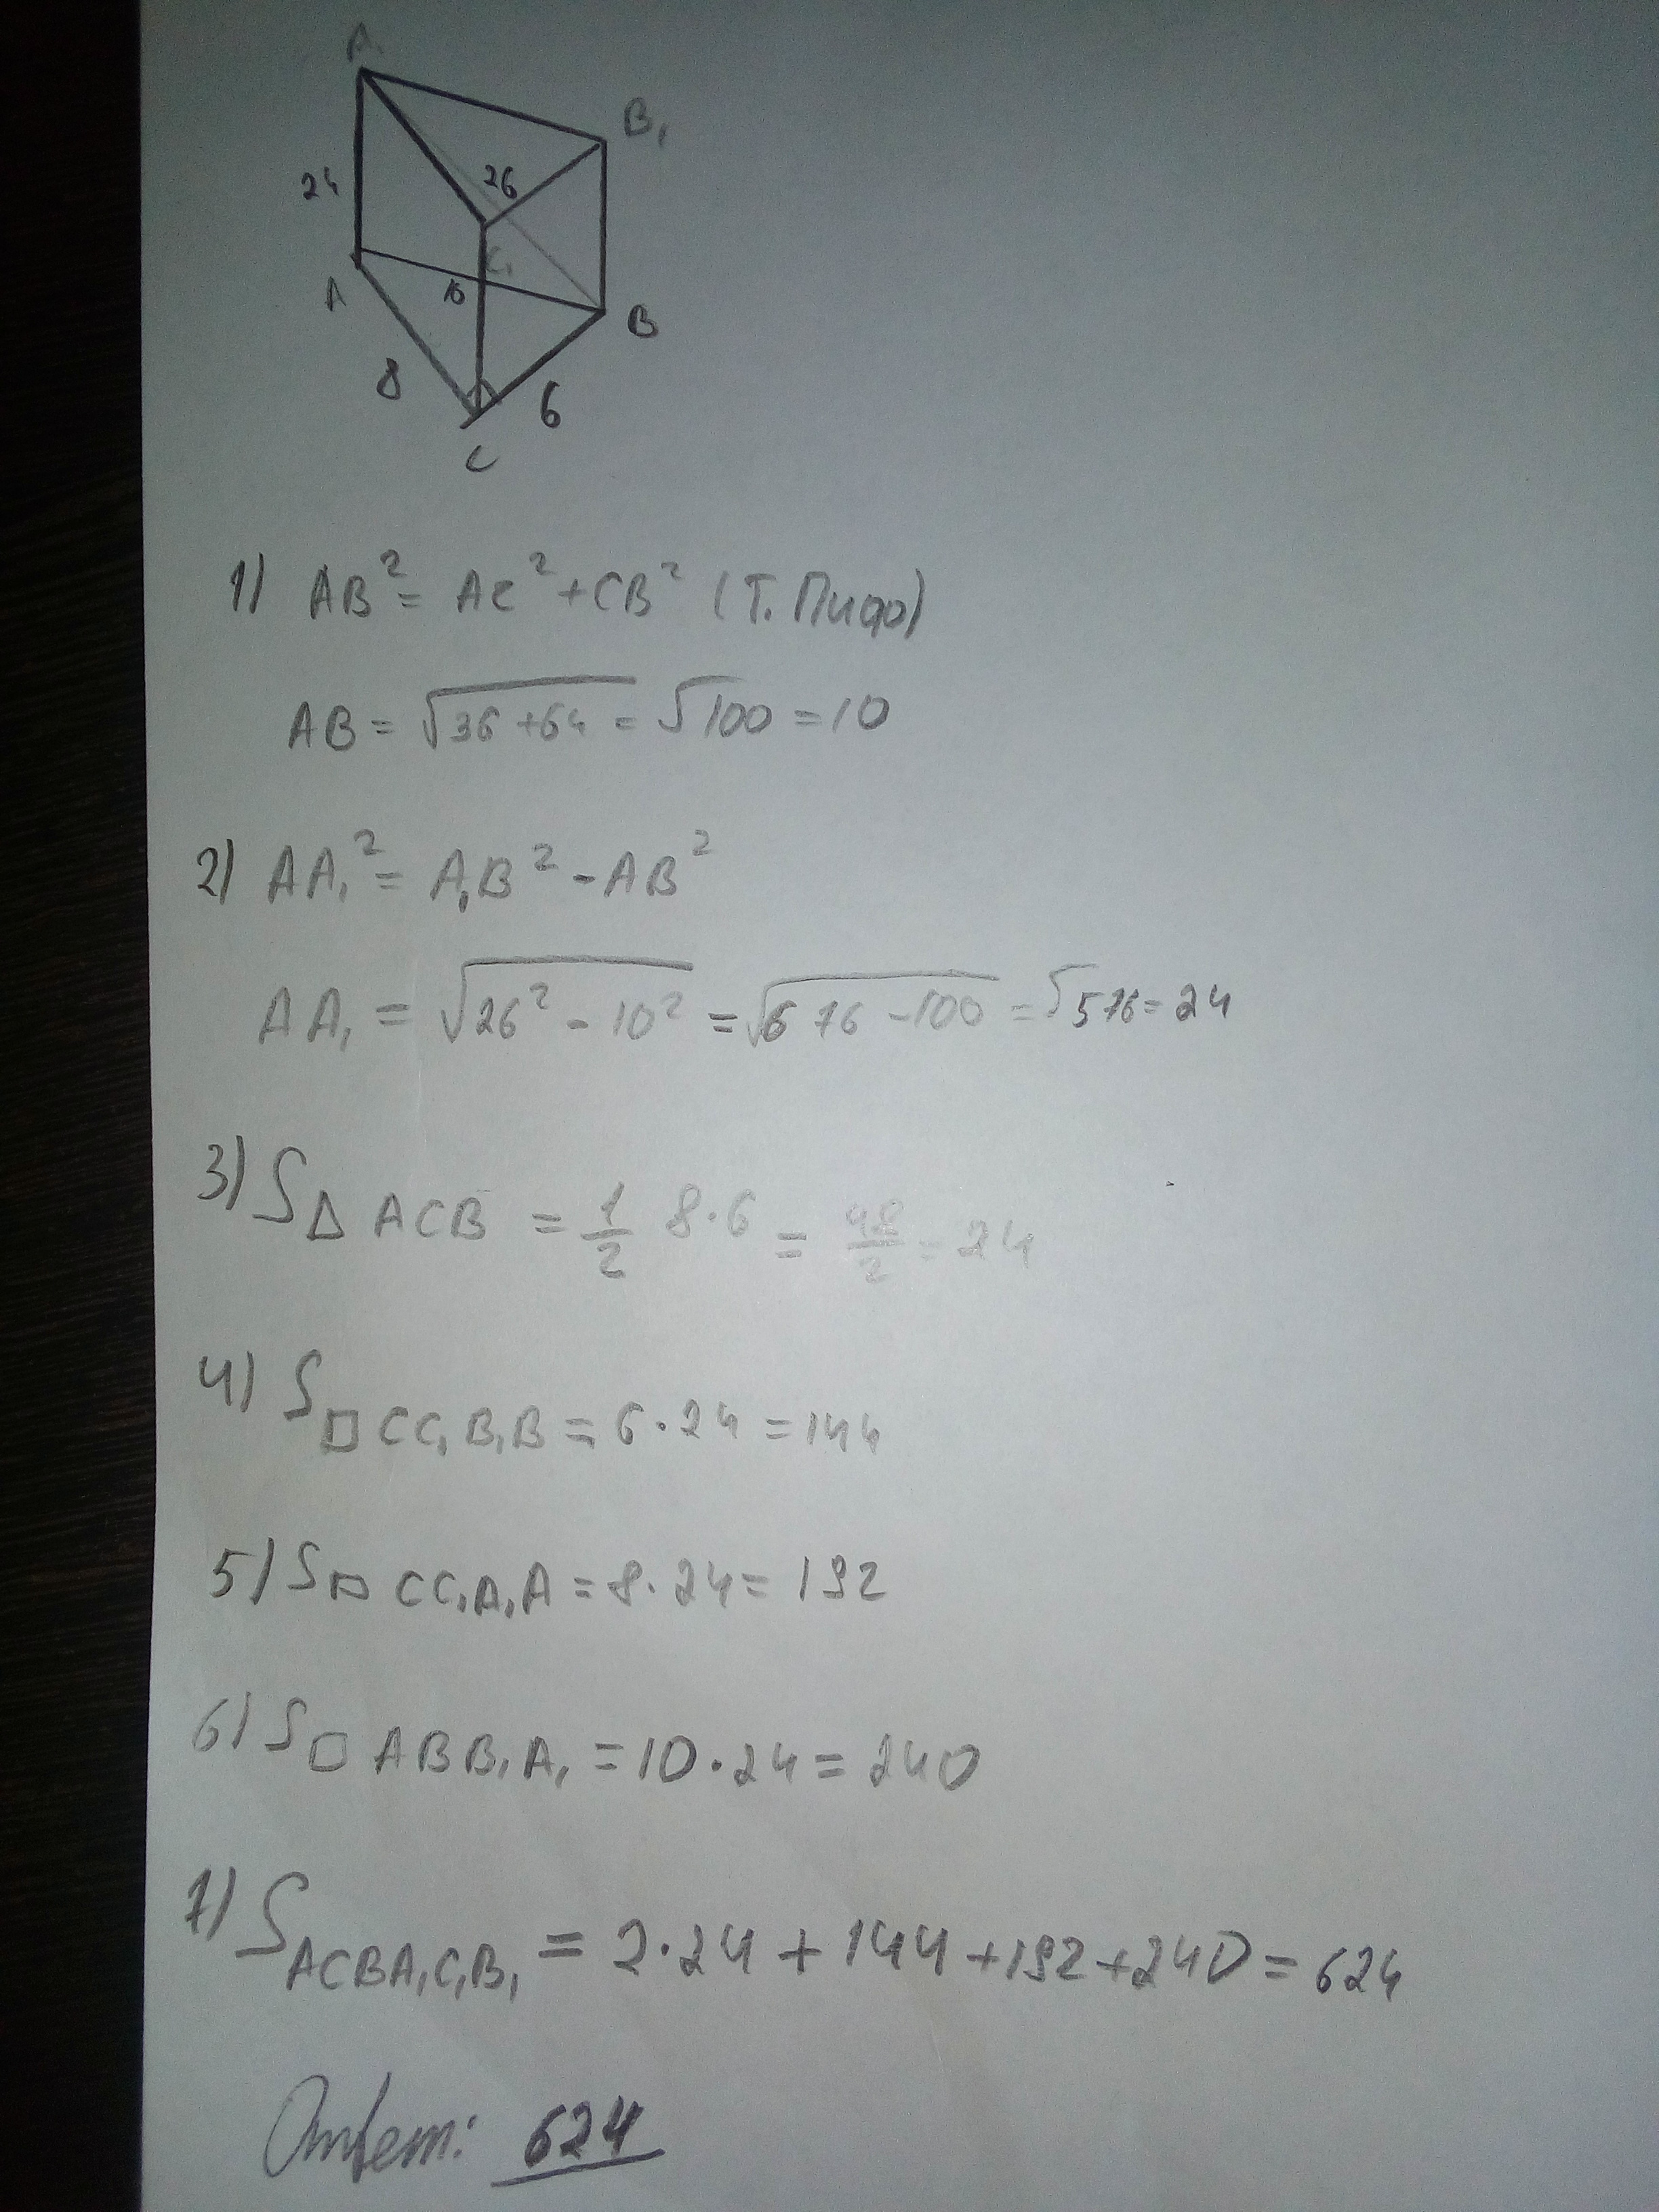 A₁
B₁
24
26
C₁
A
10
B
8
6
C
1) AB² = AC² + CB² (Т. Пифо)
AB = √36+64 = √100 = 10
2) AA₁² = A₁B² - AB²
AA₁ = √26² - 10² = √676 - 100 = √576 = 24
3) S△ ACB = 1/2 8·6 = 48/2 = 24
4) S□ CC₁B₁B = 6·24 = 144
5) S□ CC₁A₁A = 8·24 = 192
6) S□ ABB₁A₁ = 10·24 = 240
7) S ACBA₁C₁B₁ = 2·24 + 144 + 192 + 240 = 624
Ответ: 624